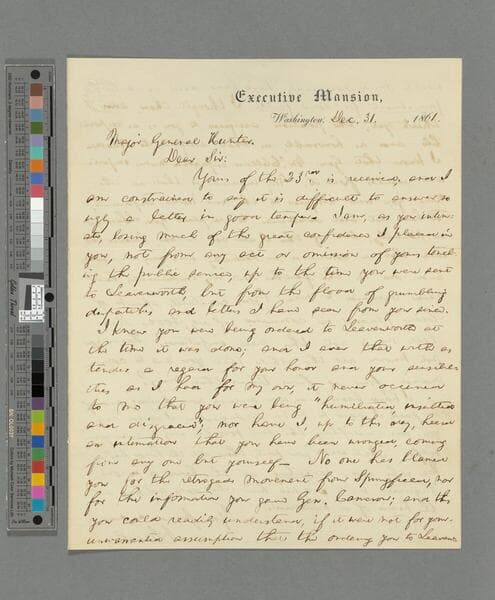 Executive Mansion,
Washington, Dec. 31, 1861.
Major General Hunter.
Dear Sir:
Yours of the 23rd is received, and I
am constrained to say it is difficult to answer so
ugly a letter in good temper. I am, as you intim-
ate, losing much of the great confidence I placed in
you, not from any act or omission of yours touch-
ing the public service, up to the time you were sent
to Leavenworth, but from the flood of grumbling
despatches and letters I have seen from you since.
I knew you were being ordered to Leavenworth at
the time it was done; and I aver that with as
tender a regard for your honor and your sensibili-
ties as I had for my own, it never occurred
to me that you were being "humiliated, insulted
and disgraced"; nor have I, up to this day, heard
an intimation that you have been wronged, coming
from any one but yourself— No one has blamed
you for the retrograde movement from Springfield, nor
for the information you gave Gen. Cameron; and this
you could readily understand, if it were not for your
unwarranted assumption that the ordering you to Leaven-